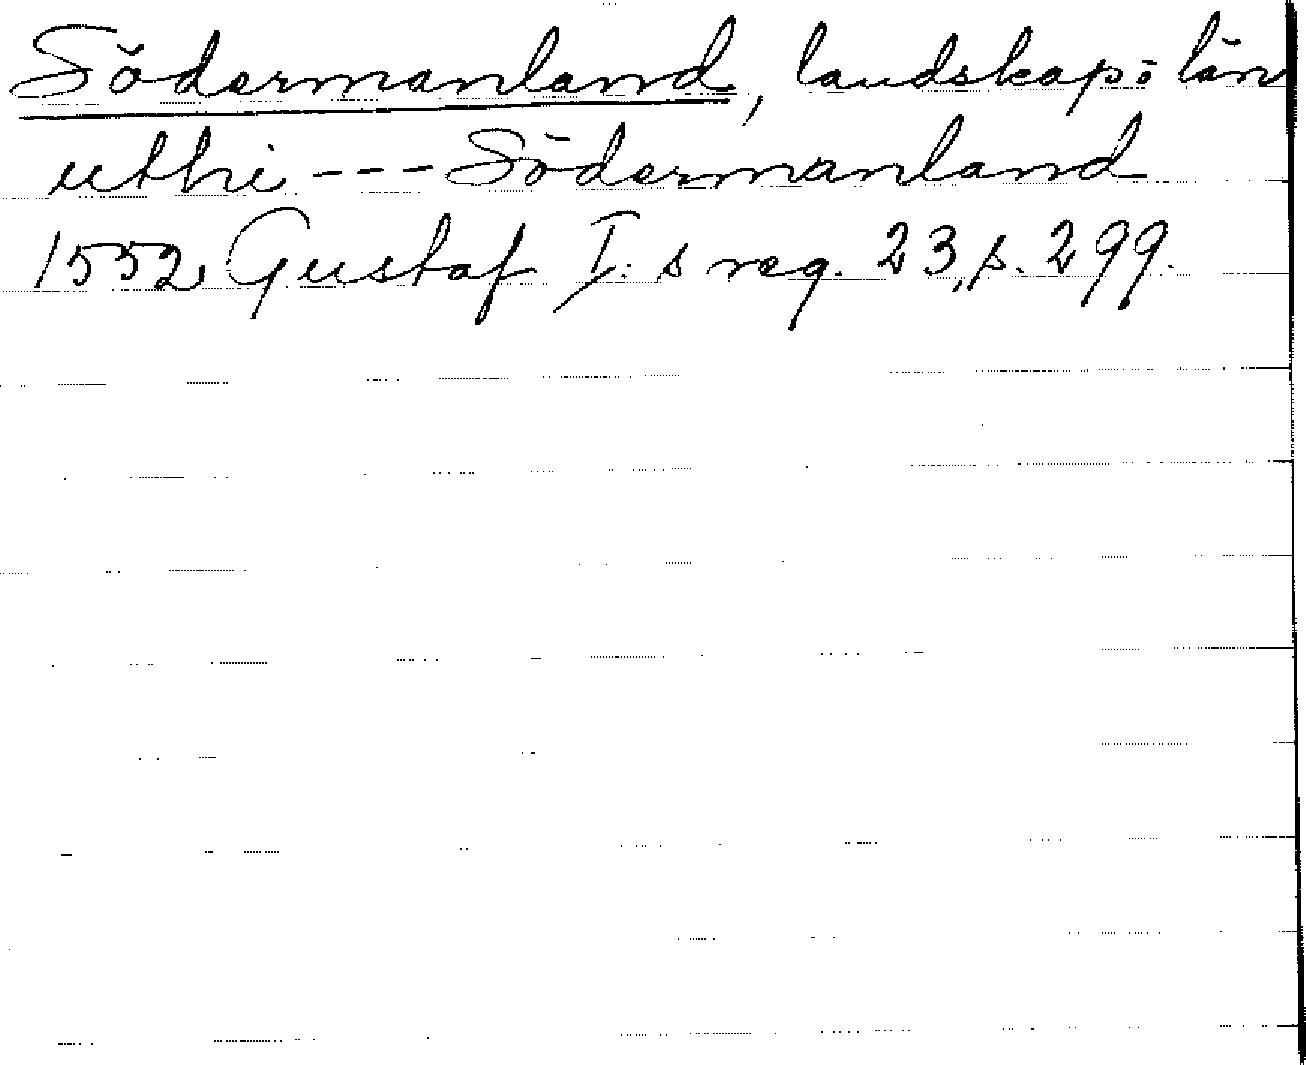 Södermanland, landskap o län
uthi --- Södermanland
1552 Gustaf I:s reg. 23, s. 299.